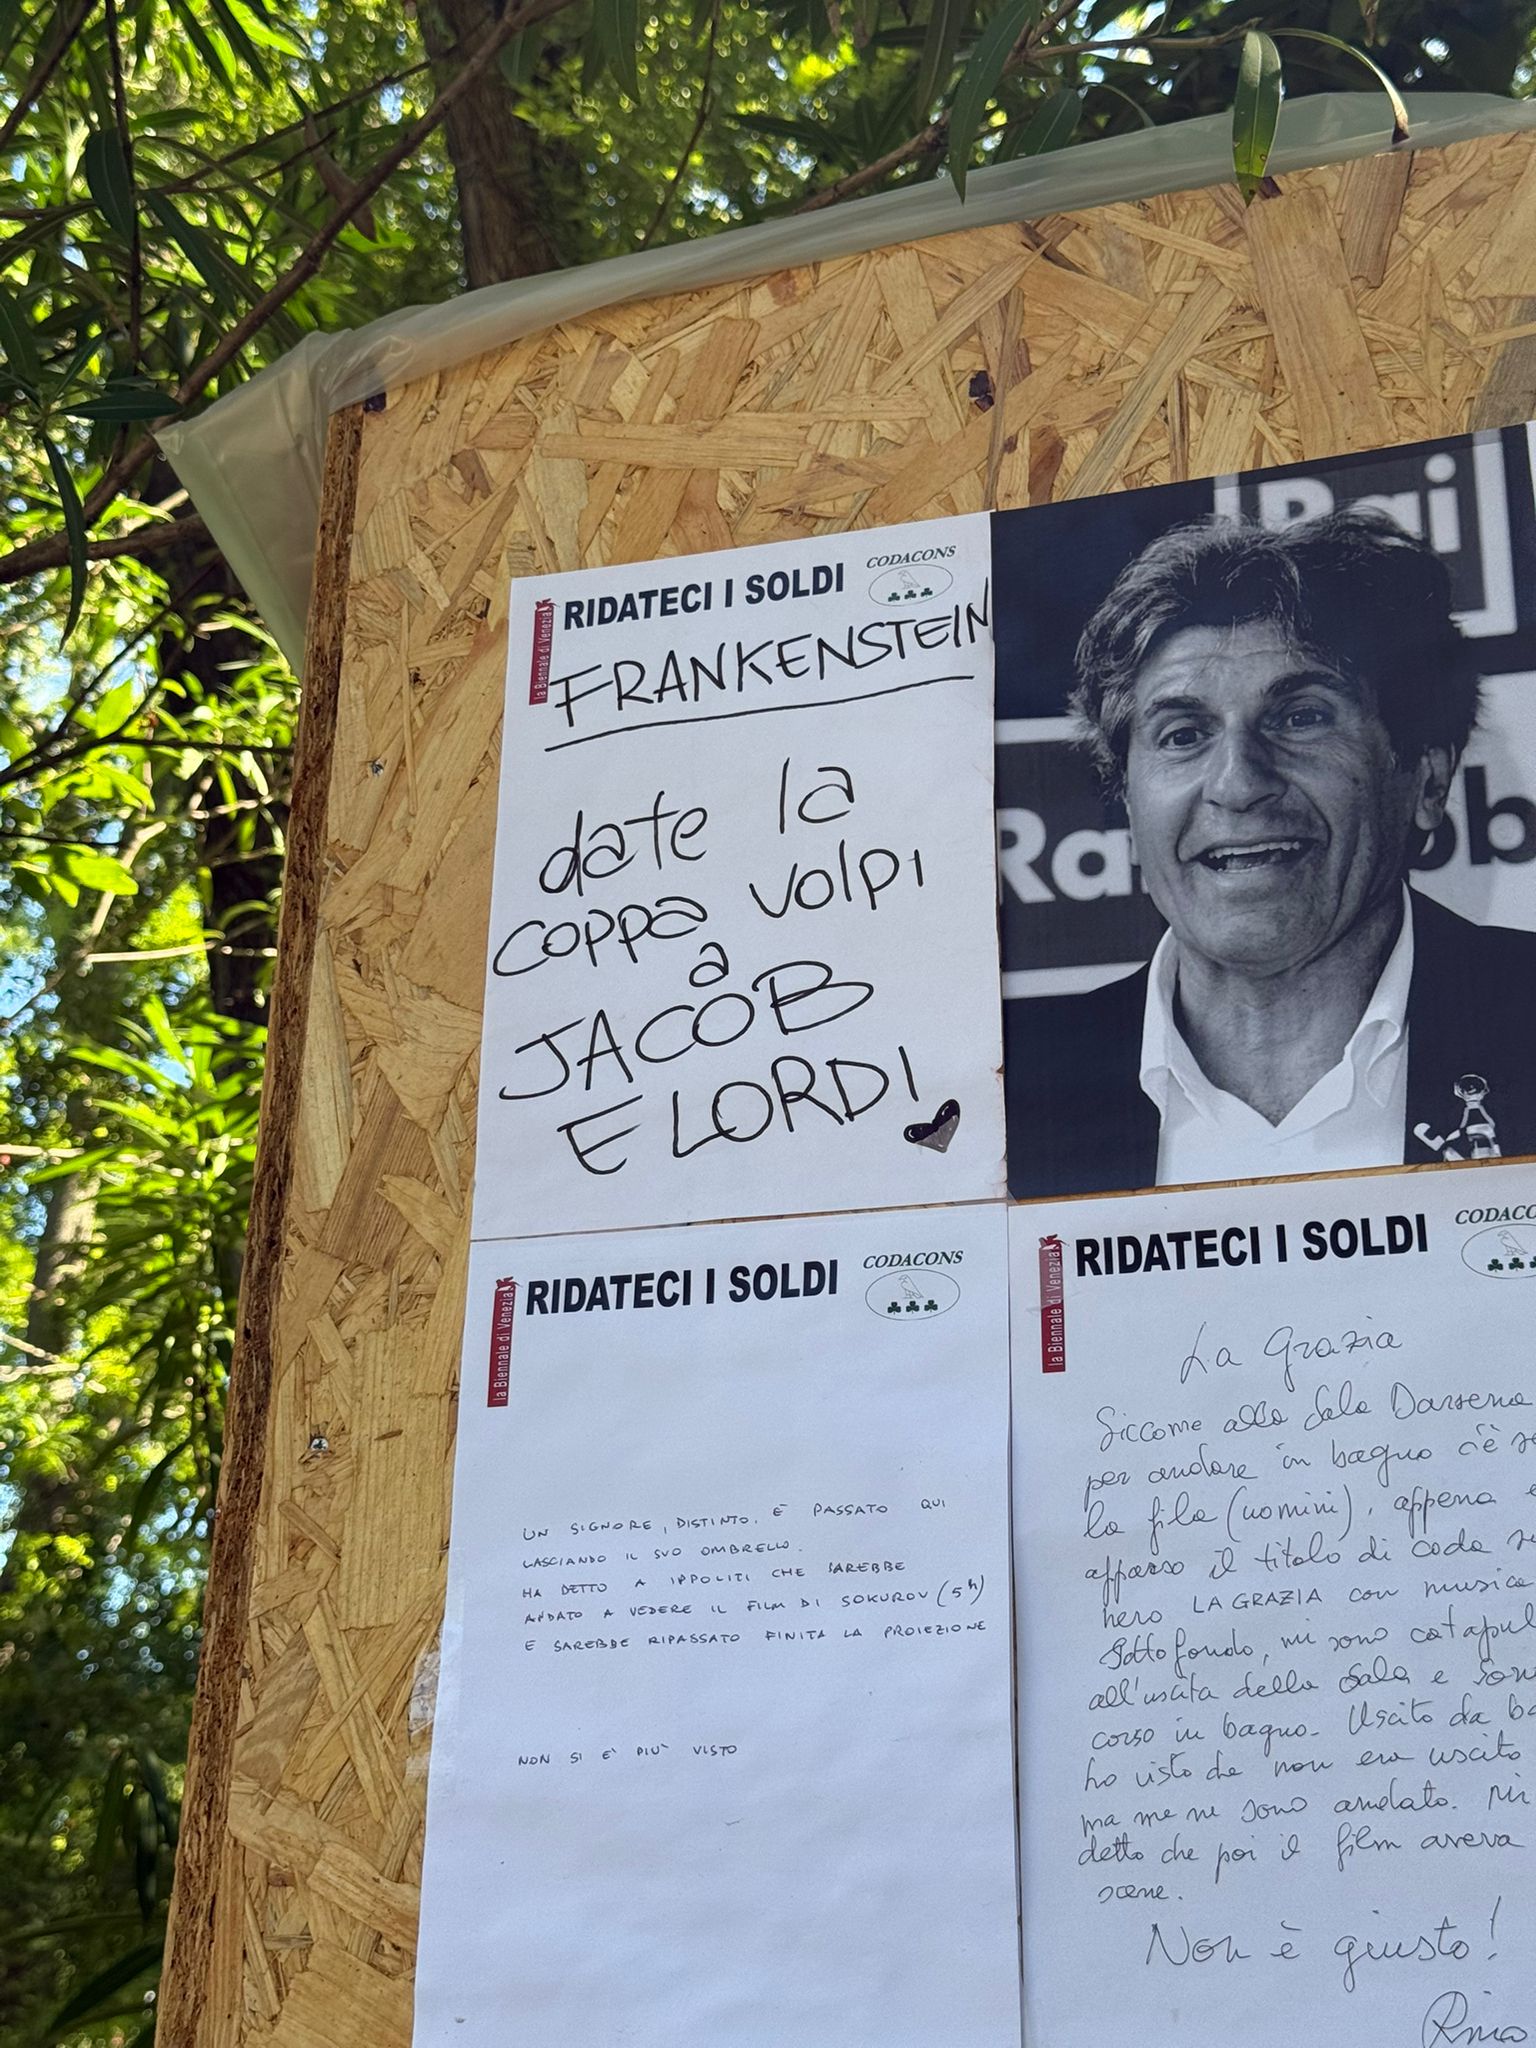 la Biennale di Venezia
RIDATECI I SOLDI
CODACONS
FRANKENSTEIN
date la
coppa volpi
a
JACOB
ELORDI
Rai
Ra
la Biennale di Venezia
RIDATECI I SOLDI
CODACONS
UN SIGNORE, DISTINTO, È PASSATO QUI
LASCIANDO IL SUO OMBRELLO.
HA DETTO A IPPOLITI CHE SAREBBE
ANDATO A VEDERE IL FILM DI SOKUROV (5h)
E SAREBBE RIPASSATO FINITA LA PROIEZIONE
NON SI E' PIU' VISTO
la Biennale di Venezia
RIDATECI I SOLDI
CODACO
La Grazia
Siccome alla Sala Darsena
per andare in bagno c'è
la fila (uomini), appena
apparso il titolo di coda
nero LA GRAZIA con musica
sottofondo, mi sono catapul
all'uscita della Sala e
corso in bagno. Uscito da
ho visto che non era uscito
ma me ne sono andato. Mi
detto che poi il film aveva
scene.
Non è giusto!